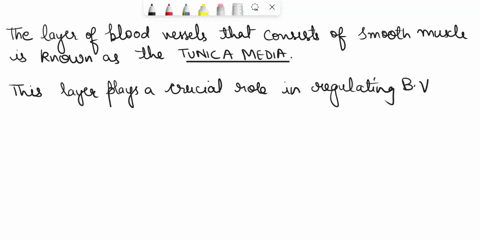 The layer of blood vessels that consists of smooth muscle
is known as the TUNICA MEDIA.
This layer plays a crucial role in regulating B.V